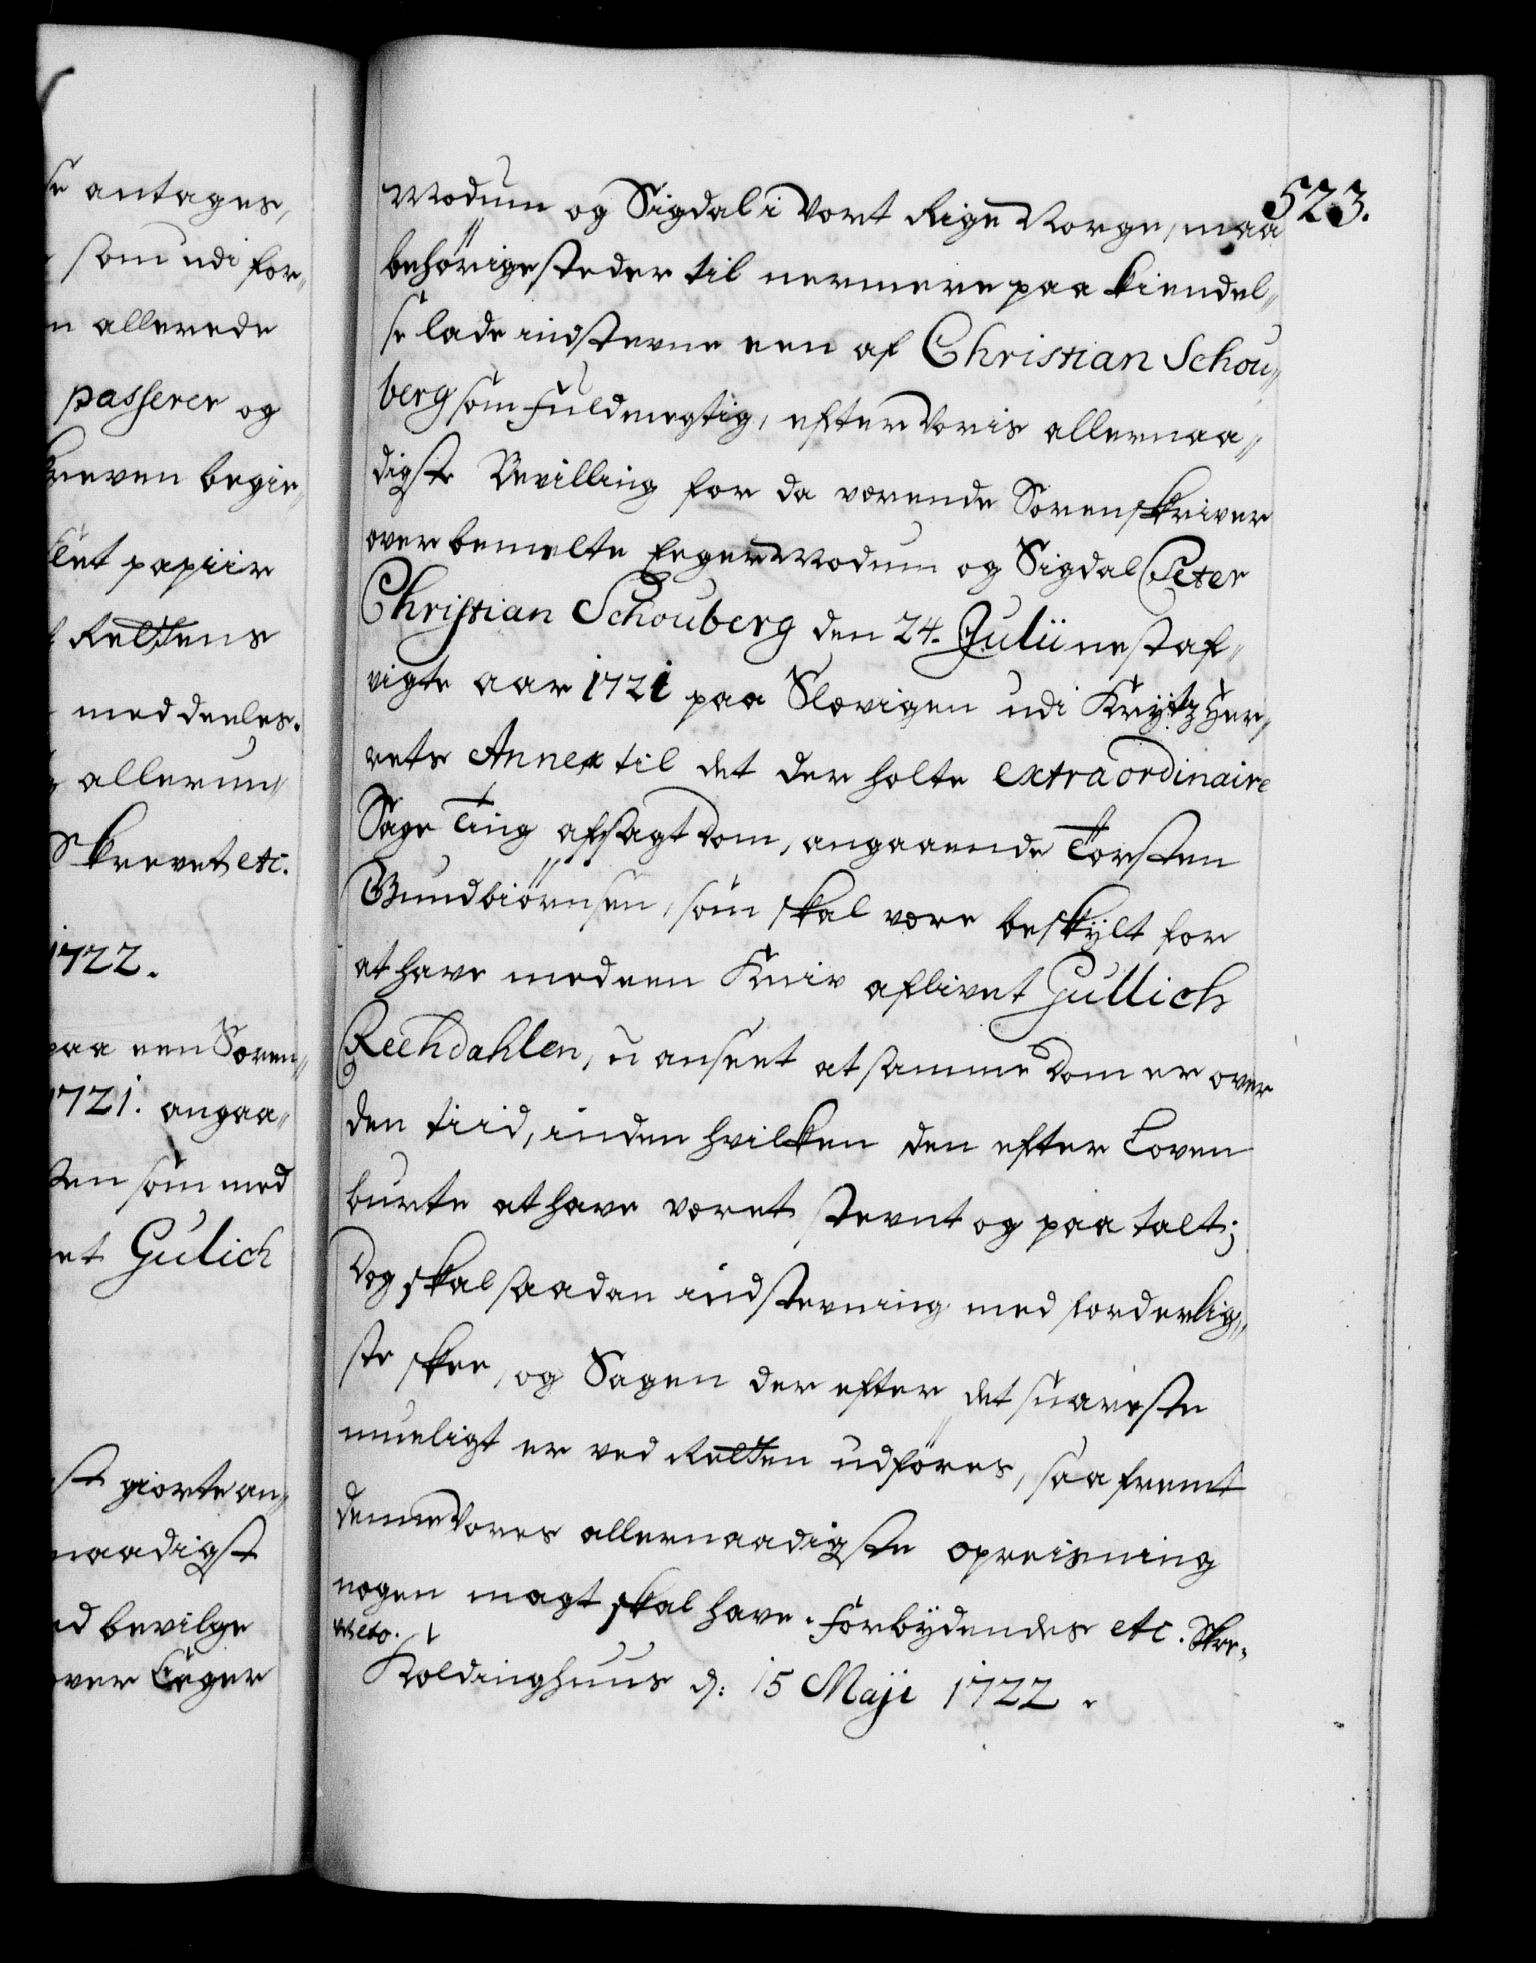 se antages,
som udi for„
n allerede
passerer og
kreven begie„
let papiir
Rettens
meddeeles.
allerun„
Skrevet etc.
1722.
paa een Soren„
1721. angaa„
sten som med
et Gulich
st giorte an„
naadigst
ed bevilge
over Eeger
523.
Modum og Sigdal i Vort Rige Norge, maa
behörige steder til nermere paa kiendel„
se lade indstevne een af Christian Schou„
berg som Fuldmegtig, efter Voris allernaa„
digste Bevilling for da værende Sorenskriver
over bemelte Eeger Modum og Sigdal Peter
Christian Schouberg den 24. Julii nest af„
vigte aar 1721 paa Slevigen udi Krytzher„
rets Annex til det der holte extraordinaire
Sage Ting afsagt Dom, angaaende Torsten
Gundbiörnsen, som skal være beskylt for
at have med een Kniv aflivet Gullich
Reehdahlen, u anseet at samme Dom er over
den tiid, inden hvilken den efter Loven
burte at have været stevnt og paa talt;
Dog skal saadan indstevning med forderlig„
ste skee, og Sagen der efter det snareste
mueligt er ved Retten udföres, saa fremt
denne Vores allernaadigste opreisning
nogen magt skal have. Forbydendes etc. Skre„
vet etc.
Koldinghuus d: 15 Maji 1722.